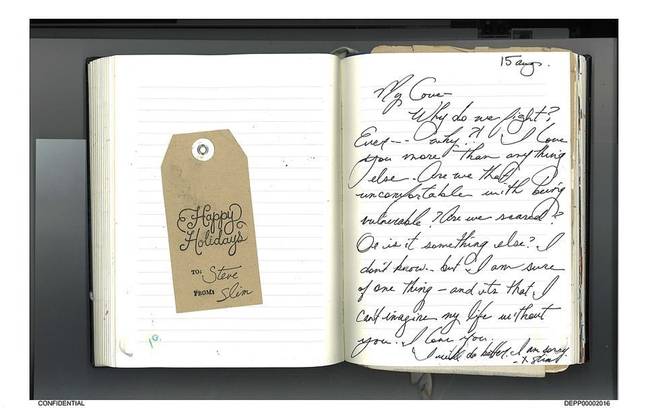 Happy
Holidays
TO: Steve
FROM: Slim
15 aug.
My Love -
Why do we fight?
Ever -- why?! I love
you more than anything
else. Are we that
uncomfortable with being
vulnerable? Are we scared?
Or is it something else? I
don't know - but I am sure
of one thing - and its that I
can't imagine my life without
you. I love you.
I will do better. I am sorry.
- x Slim
CONFIDENTIAL
DEPP00002016